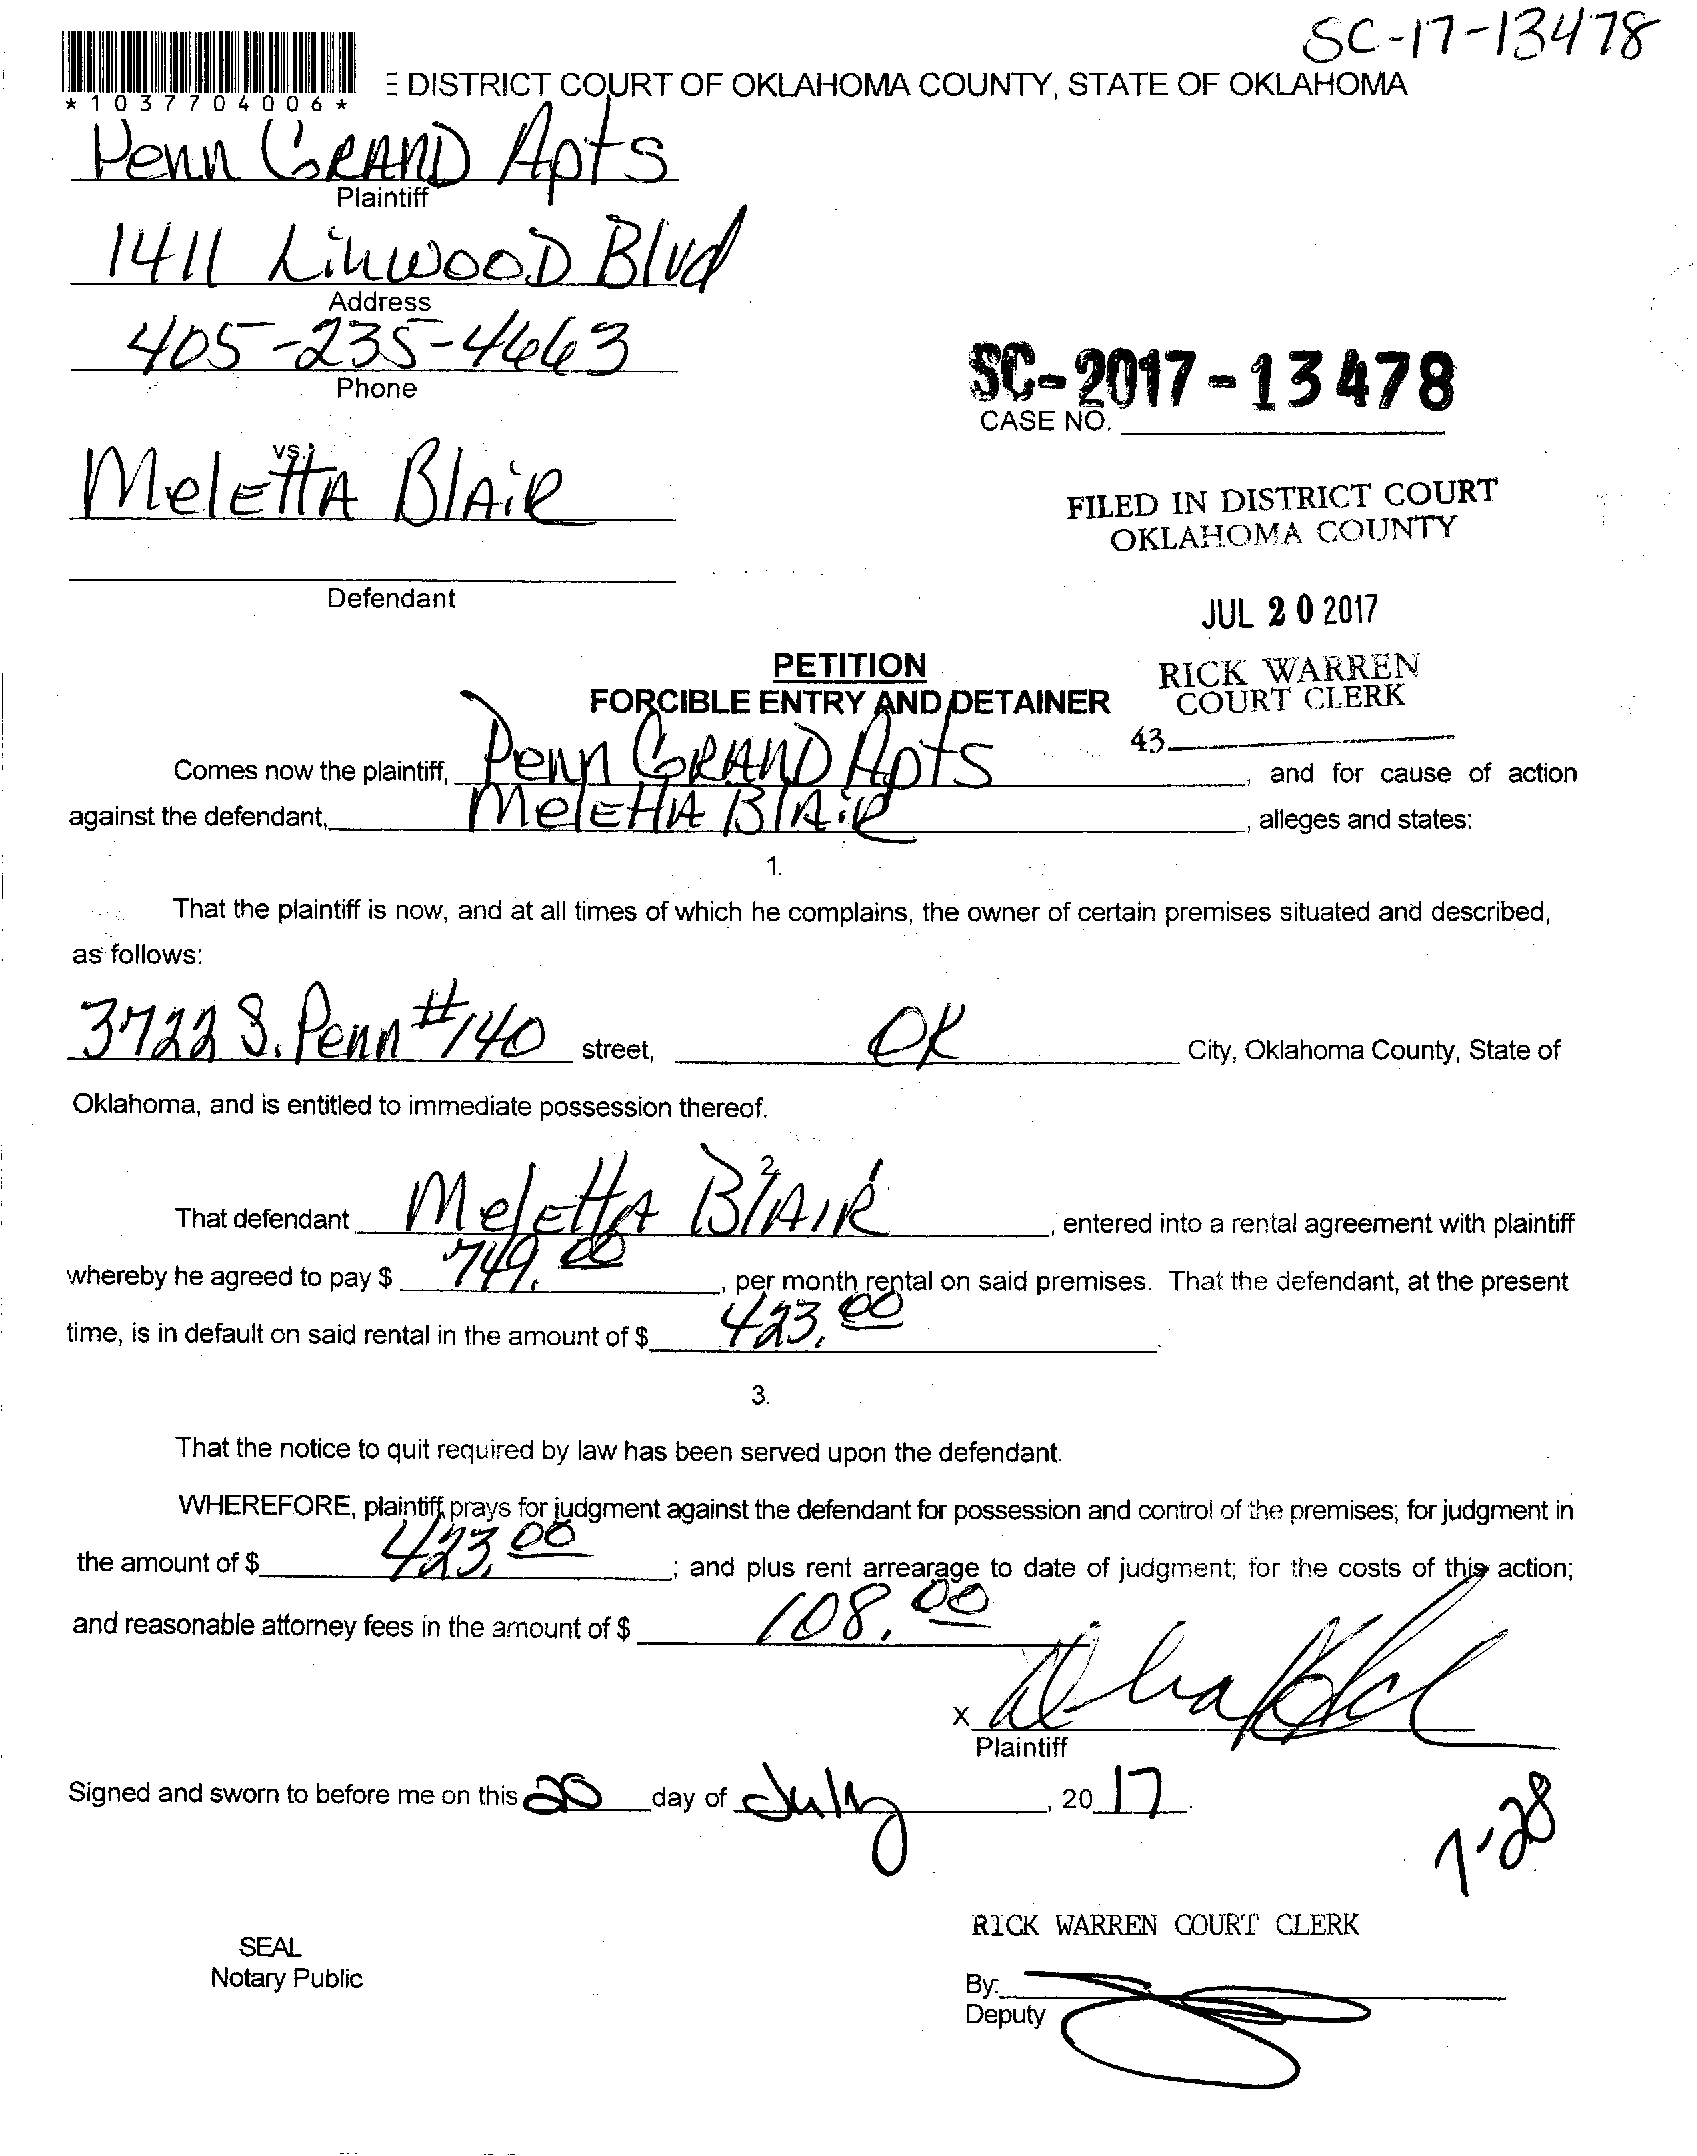 SC-17-13478
*1037704006*
E DISTRICT COURT OF OKLAHOMA COUNTY, STATE OF OKLAHOMA
Penn GRAND Apts
Plaintiff
1411 LinwooD Blvd
Address
405-235-4663
Phone
SC-2017-13478
CASE NO.
vs.
MelettA BlAiR
FILED IN DISTRICT COURT
OKLAHOMA COUNTY
Defendant
JUL 20 2017
PETITION
RICK WARREN
FORCIBLE ENTRY AND DETAINER
COURT CLERK
43
Comes now the plaintiff, Penn GRAND Apts, and for cause of action
against the defendant, MelettA BlAiR, alleges and states:
1.
That the plaintiff is now, and at all times of which he complains, the owner of certain premises situated and described,
as follows:
3722 S. Penn #140 street, OK City, Oklahoma County, State of
Oklahoma, and is entitled to immediate possession thereof.
2.
That defendant MelettA BlAIR, entered into a rental agreement with plaintiff
whereby he agreed to pay $ 749.00, per month rental on said premises. That the defendant, at the present
time, is in default on said rental in the amount of $ 423.00.
3.
That the notice to quit required by law has been served upon the defendant.
WHEREFORE, plaintiff prays for judgment against the defendant for possession and control of the premises; for judgment in
the amount of $ 423.00; and plus rent arrearage to date of judgment; for the costs of this action;
and reasonable attorney fees in the amount of $ 108.00
x
Plaintiff
Signed and sworn to before me on this 20 day of July, 2017.
7-28
RICK WARREN COURT CLERK
SEAL
Notary Public
By:
Deputy